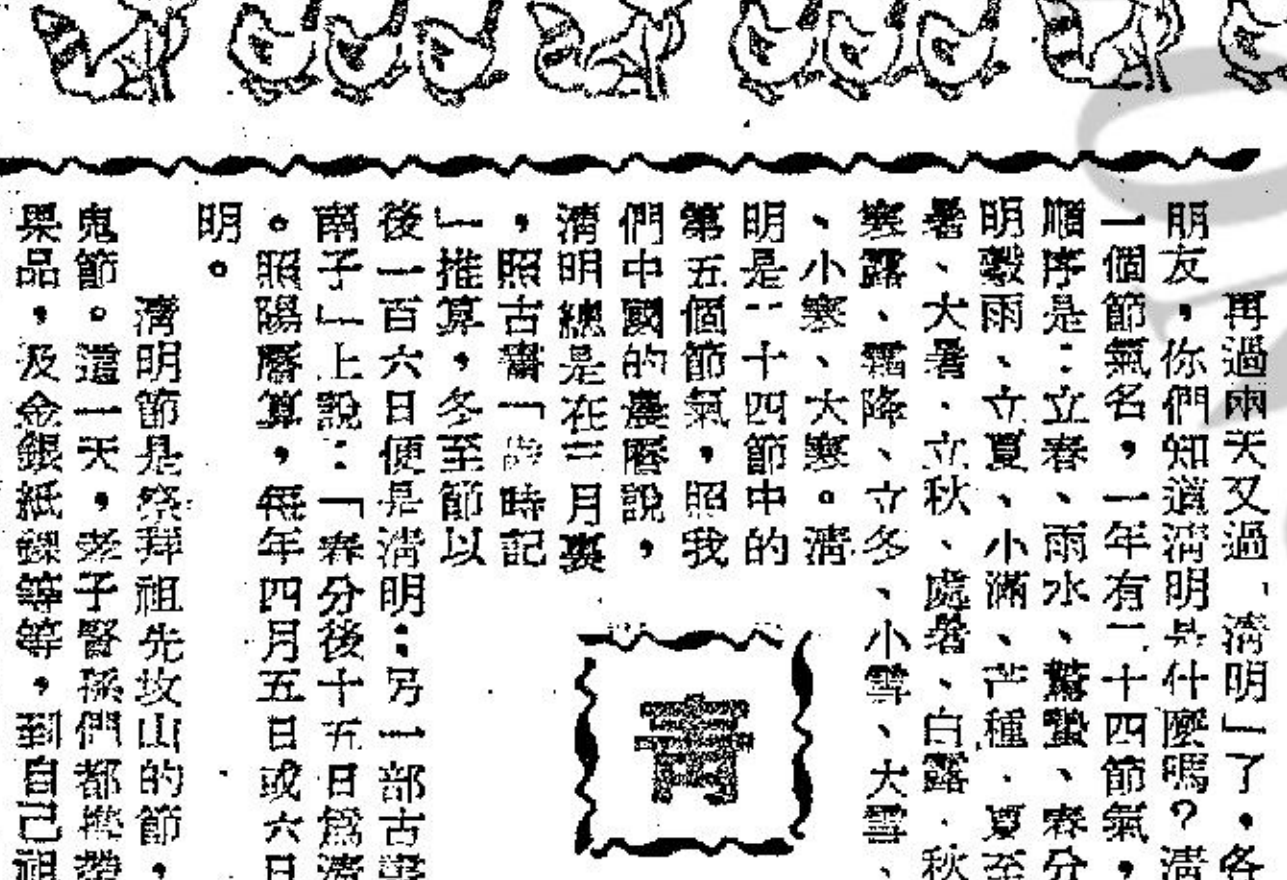 再過兩天又過「清明」了，各
朋友，你們知道清明是什麼嗎？清
一個節氣名，一年有二十四節氣，
順序是：立春、雨水、驚蟄、春分
明穀雨、立夏、小滿、芒種、夏至
暑、大暑、立秋、處暑、白露、秋
寒露、霜降、立冬、小雪、大雪、
、小寒、大寒。清
明是二十四節中的
第五個節氣，照我
們中國的農曆說，
清明總是在三月裏
，照古書「歲時記
」推算，冬至節以
後一百六日便是清明；另一部古書
南子」上說：「春分後十五日爲清
。照陽曆算，每年四月五日或六日
明。
清明節是祭拜祖先攻山的節，
鬼節。這一天，老子賢孫們都攜帶
果品，及金銀紙錁等等，到自己祖